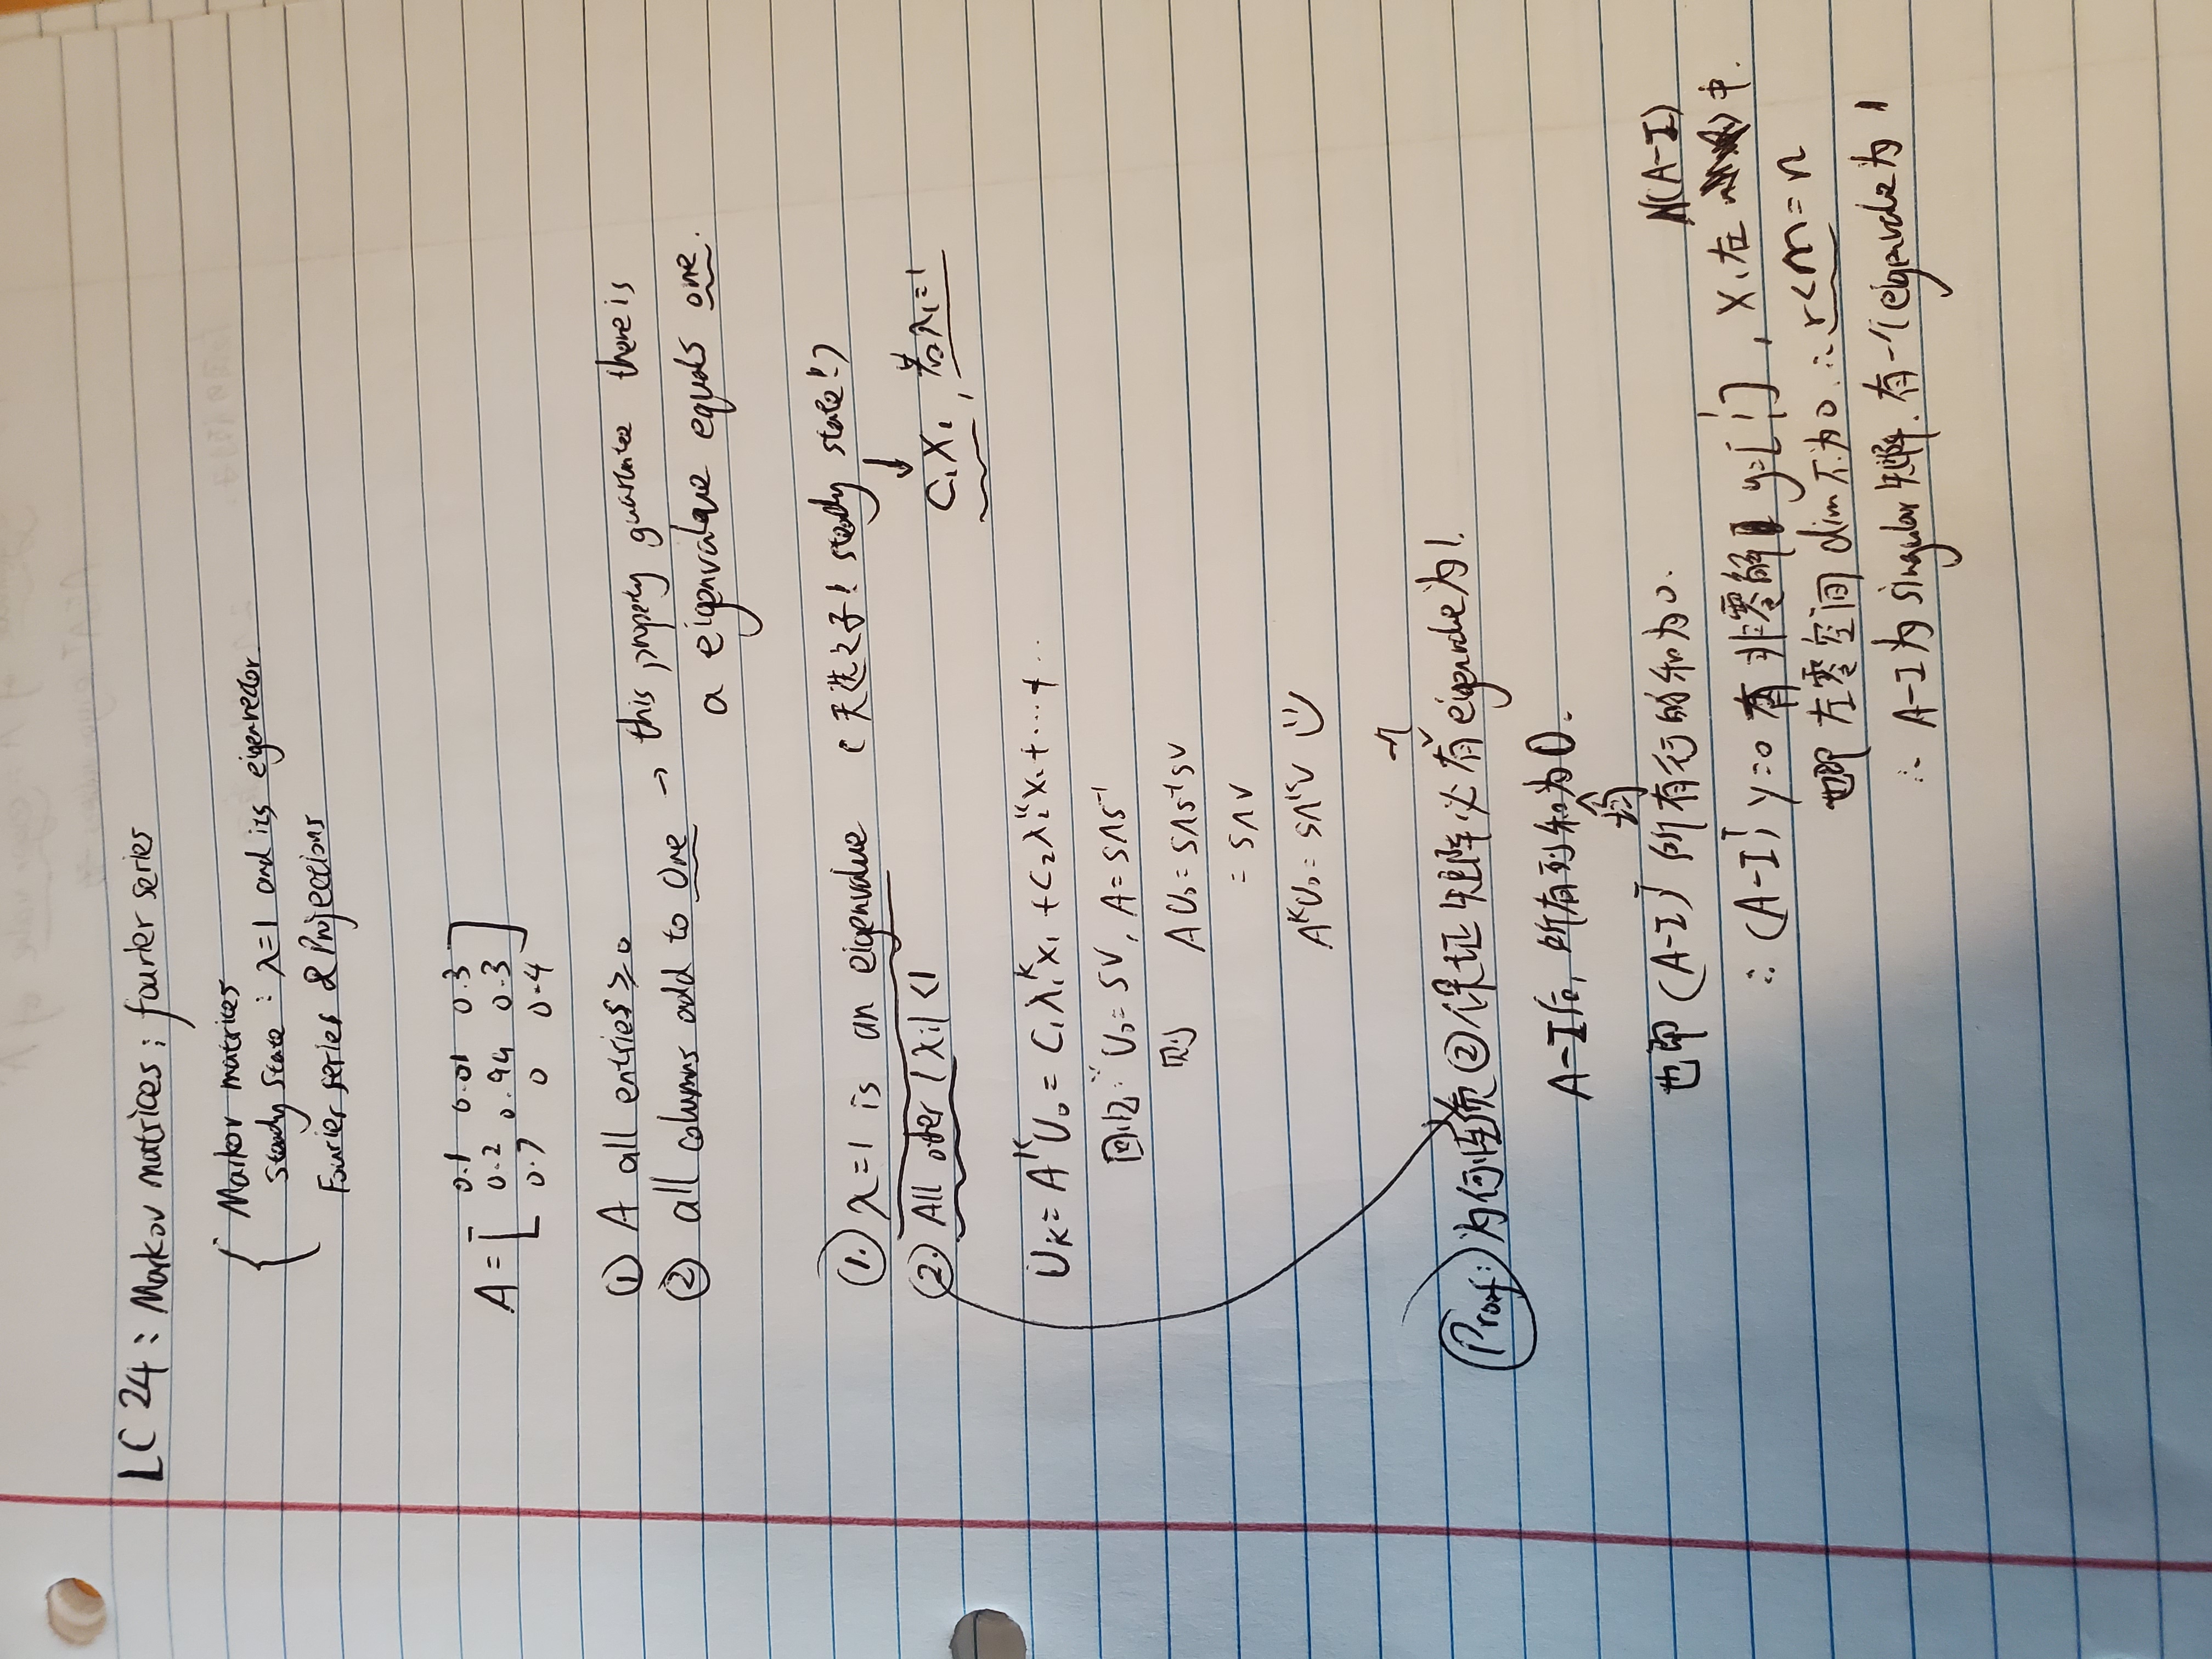 LC 24: Markov matrices; fourier series
Markov matrices
Steady State: λ=1 and its eigenvector
Fourier series & Projections
A = [ 0.1 0.01 0.3
0.2 0.94 0.3
0.7 0 0.4 ]
① A all entries ≥ 0
② all columns add to One → this property guarantee there is
a eigenvalue equals one.
①. λ=1 is an eigenvalue (天选之子! steady state!)
②. All other |λi| <1
C₁X₁, 若λ₁=1
Uₖ = AᴷU₀ = C₁λ₁ᴷX₁ + C₂λ₂ᴷX₁ + ⋯ + ..
回忆: U₀ = SV, A = SΛS⁻¹
则 AU₀ = SΛS⁻¹SV
= SΛV
AᴷU₀ = SΛᴷV
Proof: 为何性质②保证矩阵必有一个eigenvalue为1.
A-I后, 所有列和均为0.
也即 (A-I)ᵀ 所有行的和为0.
∴ (A-I)ᵀ y=0 有非零解 y=[1 1 1], X₁在 N(A-I) 中.
也即 左零空间 dim不为0. ∴ r<m=n
∴ A-I为singular矩阵. 有一个eigenvalue为1